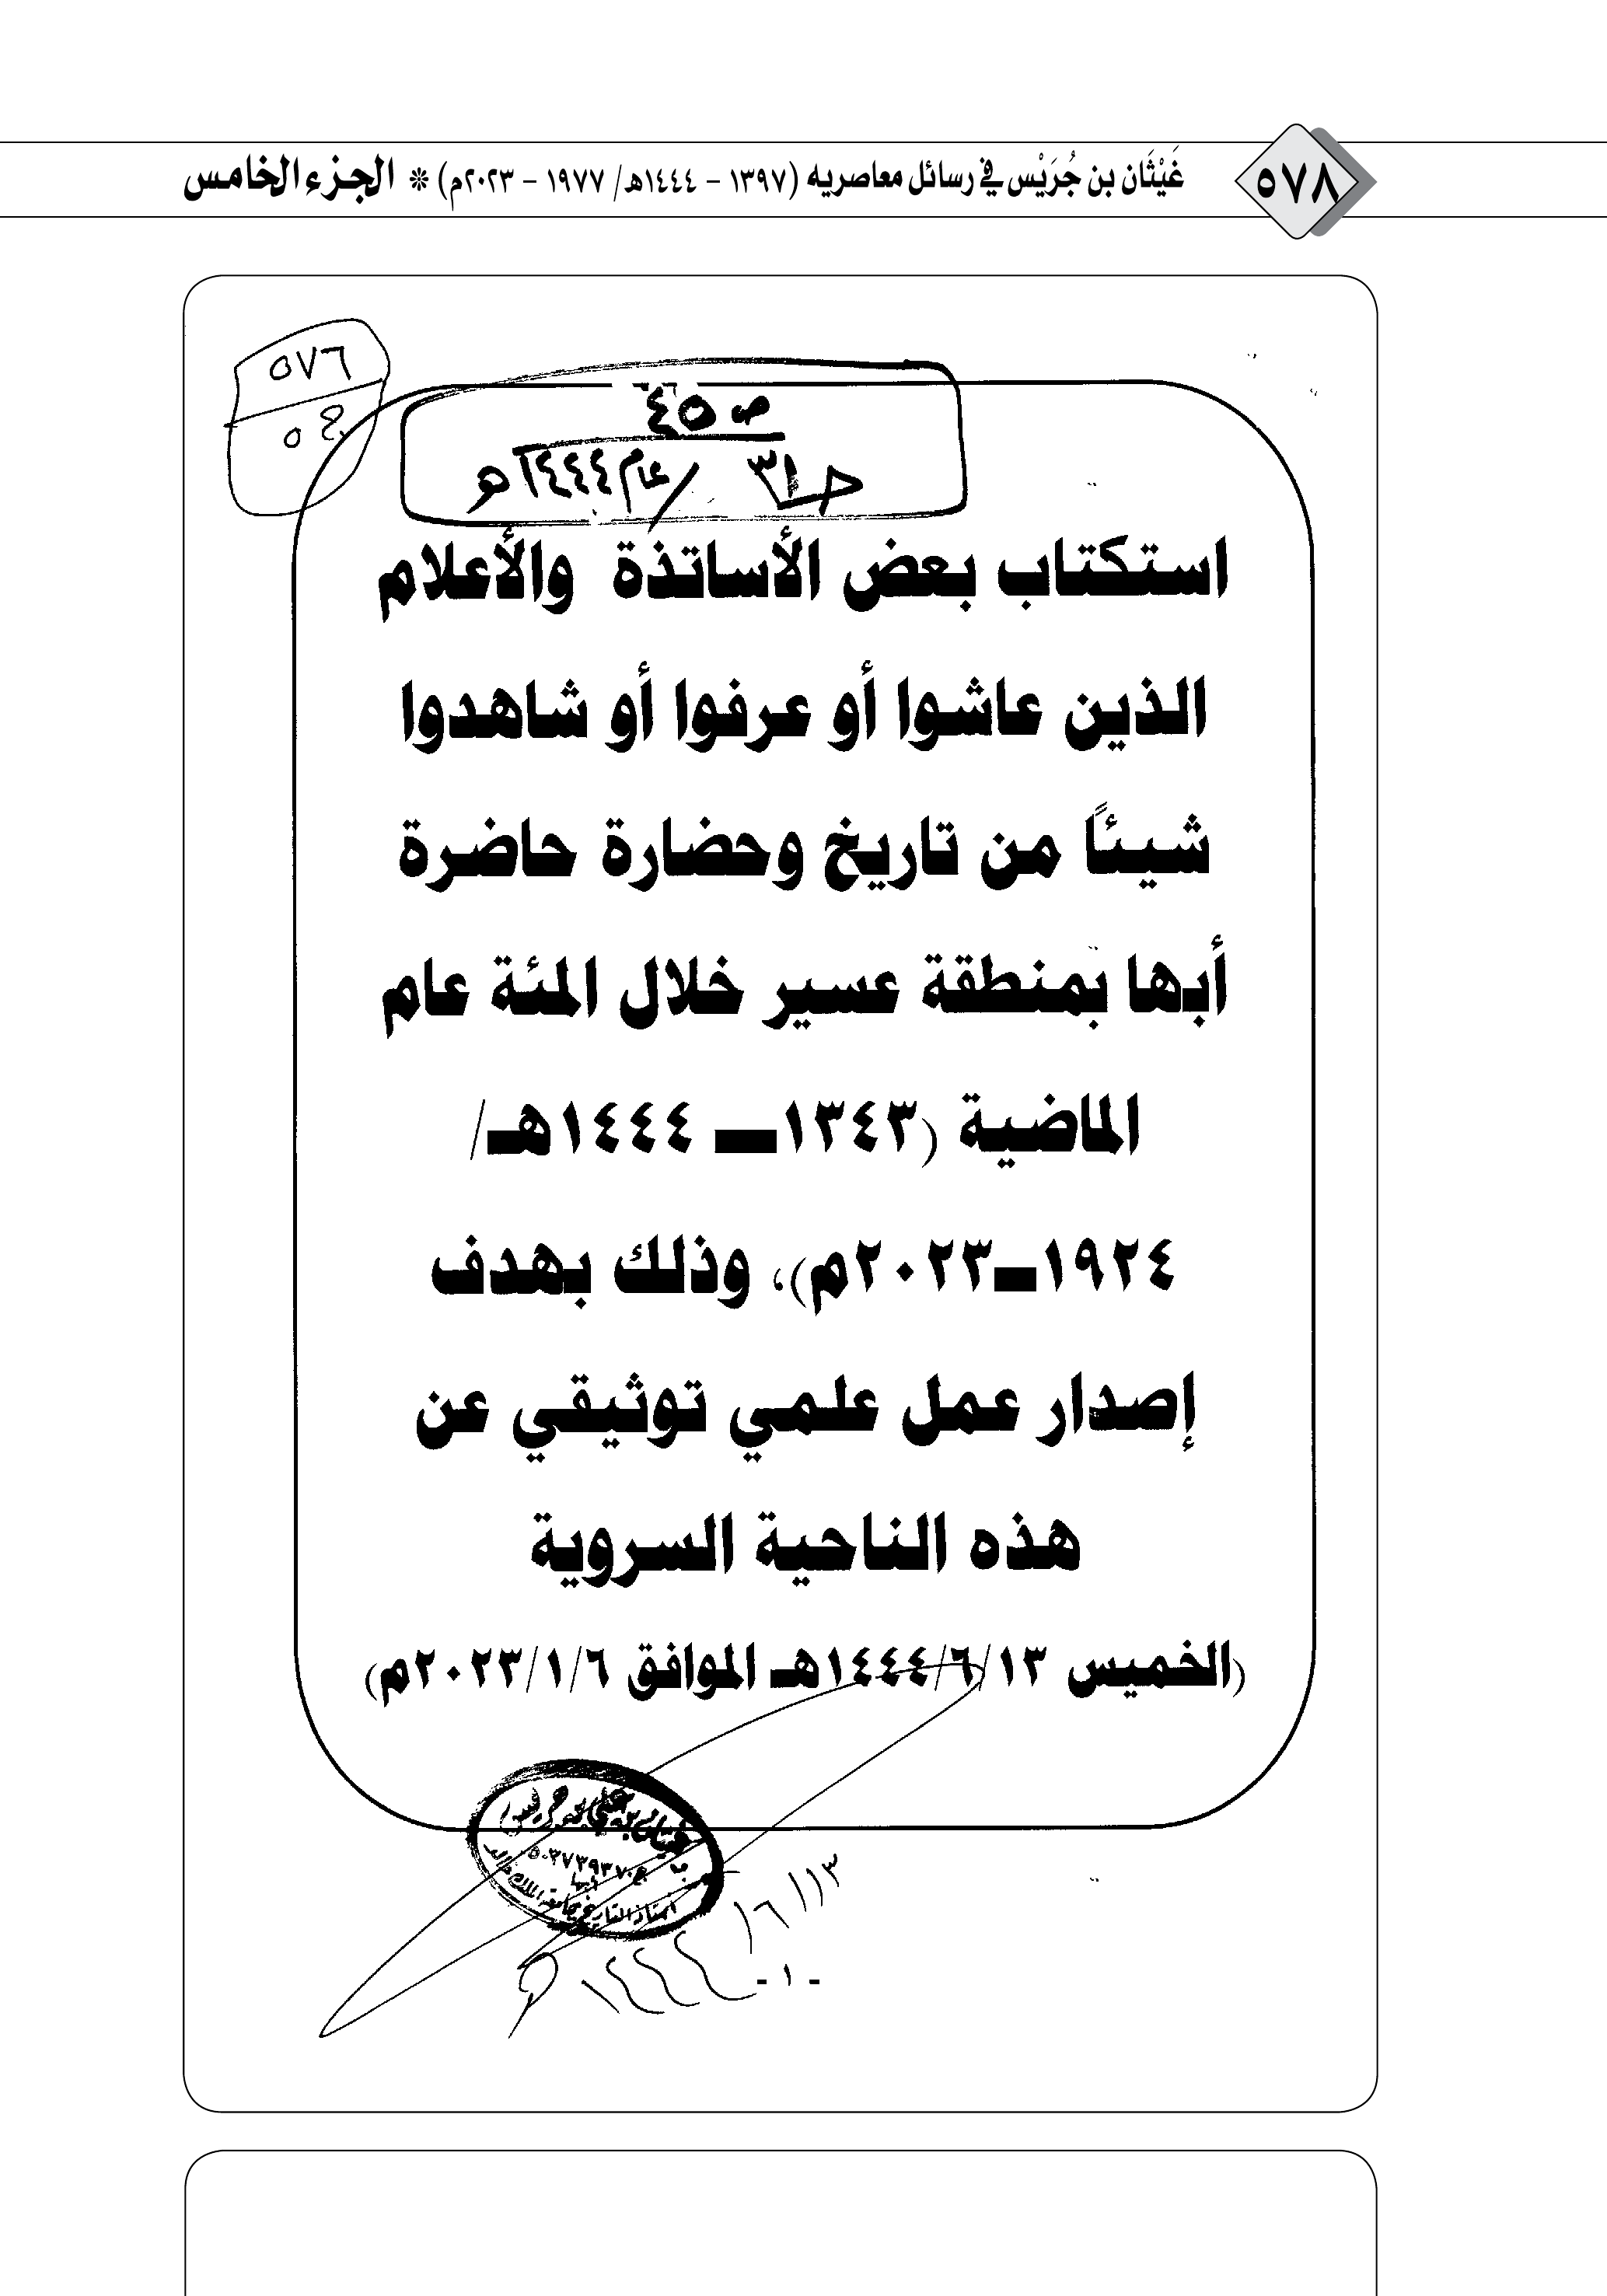 ٥٧٨
غَيْثَان بن جُرَيْس في رسائل معاصريه (١٣٩٧ – ١٤٤٤هـ/ ١٩٧٧ – ٢٠٢٣م) * الجزء الخامس
٥٧٦
ج ٥
ص ٤٥
ج ٣١ / عام ١٤٤٤هـ
استكتاب بعض الأساتذة والأعلام
الذين عاشوا أو عرفوا أو شاهدوا
شيئاً من تاريخ وحضارة حاضرة
أبها بمنطقة عسير خلال المئة عام
الماضية (١٣٤٣ــ ١٤٤٤هـ/
١٩٢٤ــ٢٠٢٣م)، وذلك بهدف
إصدار عمل علمي توثيقي عن
هذه الناحية السروية
(الخميس ١٣/٦/١٤٤٤هـ الموافق ٢٠٢٣/١/٦م)
غيثان بن علي بن جريس
أبها
أستاذ التاريخ بجامعة الملك خالد
١٣/٦/١٤٤٤هـ
- ١ -